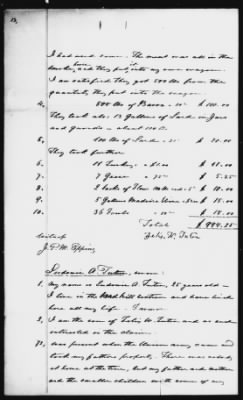 I had seed corn. The meat was all in the
smoke house, and they put it into my own wagon.
I am satisfied they got 500 lbs from the
quantity they put into the wagon.
4, 500 lbs of Bacon $100.00
They took also 13 Gallons of Lard in Jars
and Gourds - about 100 lb.
5, 100 lbs of Lard 20.00
They took further
6, 11 Turkeys $1.00 $11.00
7, 7 Geese 75c $5.25
8, 2 Sacks of Flour $10.00
9, 5 Gallons Madeira Wine $15.00
10, 36 Fowls $18.00
Total $994.25
J.P.M. Epping
Ludovic A. Tuten, sworn:
1, My name is Ludovic A. Tuten, 25 years old -
I live in the and have lived
here all my life. Farmer
2, I am the son of Zeles W. Tuten and no and
interested in the claim.
73, was present when the Union army came and
took my fathers property. There was nobody
at home at the time, but my father and mother
and the smaller children with some of my